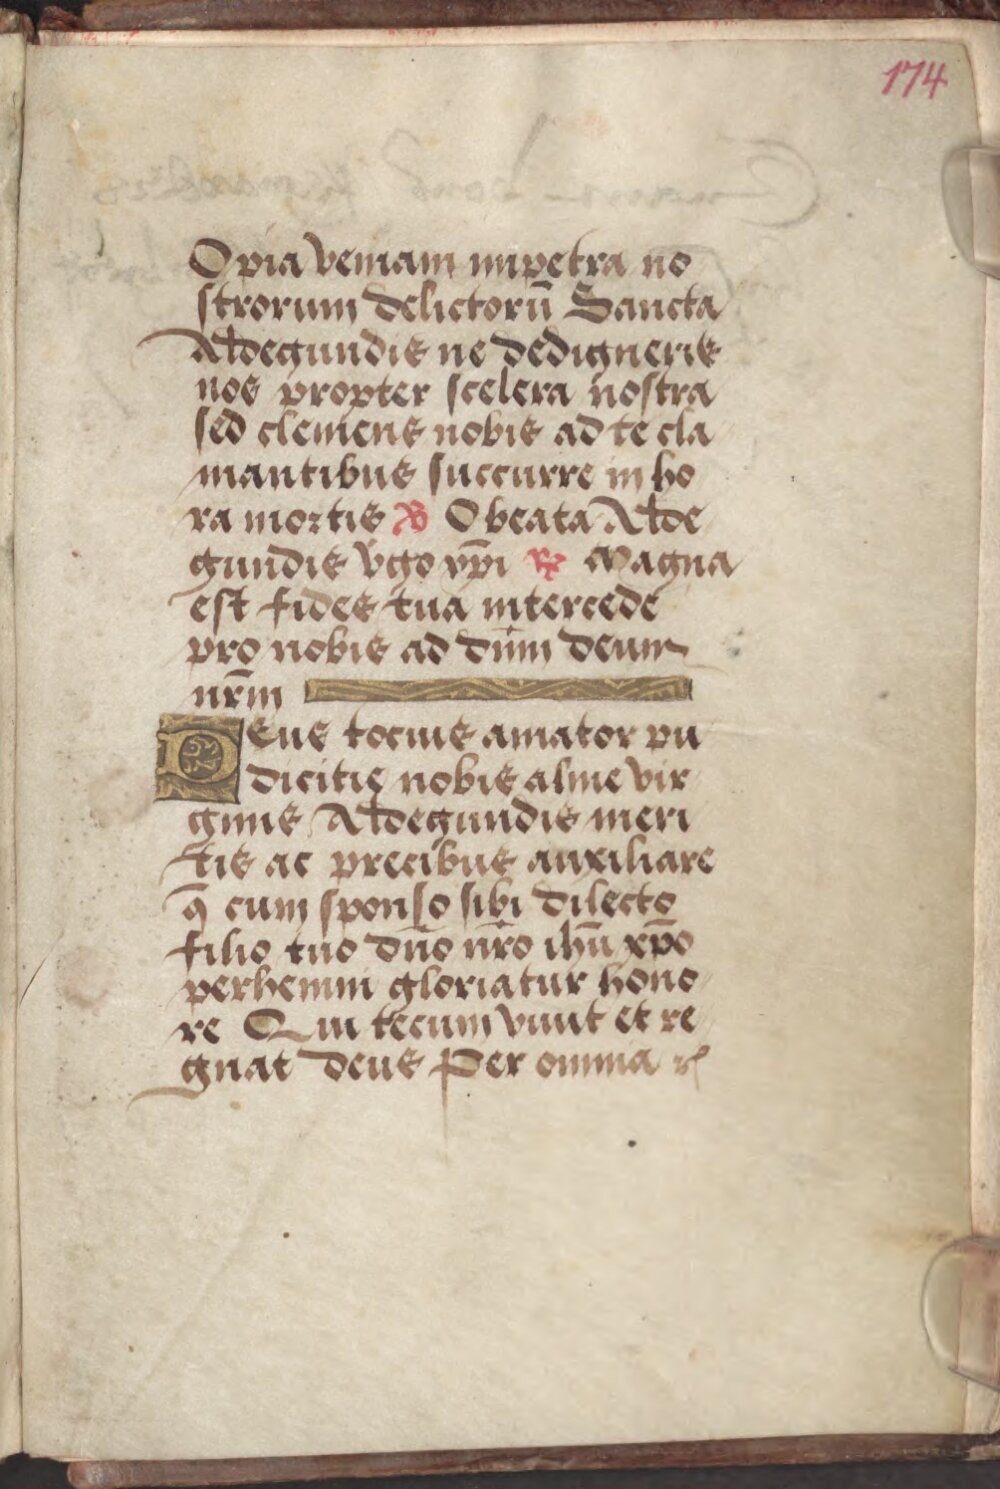 174
O pia veniam impetra no
strorum delictorū Sancta
Aldegundis ne dedigneris
nos propter scelera nostra
sed clemens nobis ad te cla
mantibus succurre in ho
ra mortis ℣ O beata Alde
gundis v̇go xp̄i ℟ Magna
est fides tua intercede
pro nobis ad dn̄m deum
nr̄m
Deus tocius amator pu
dicitie nobis alme vir
ginis Aldegundis meri
tis ac precibus auxiliare
q̄ cum sponso sibi dilecto
filio tuo dn̄o nr̄o ihū xp̄o
perhenni gloriatur hono
re Qui tecum viuit et re
gnat deus Per omnia